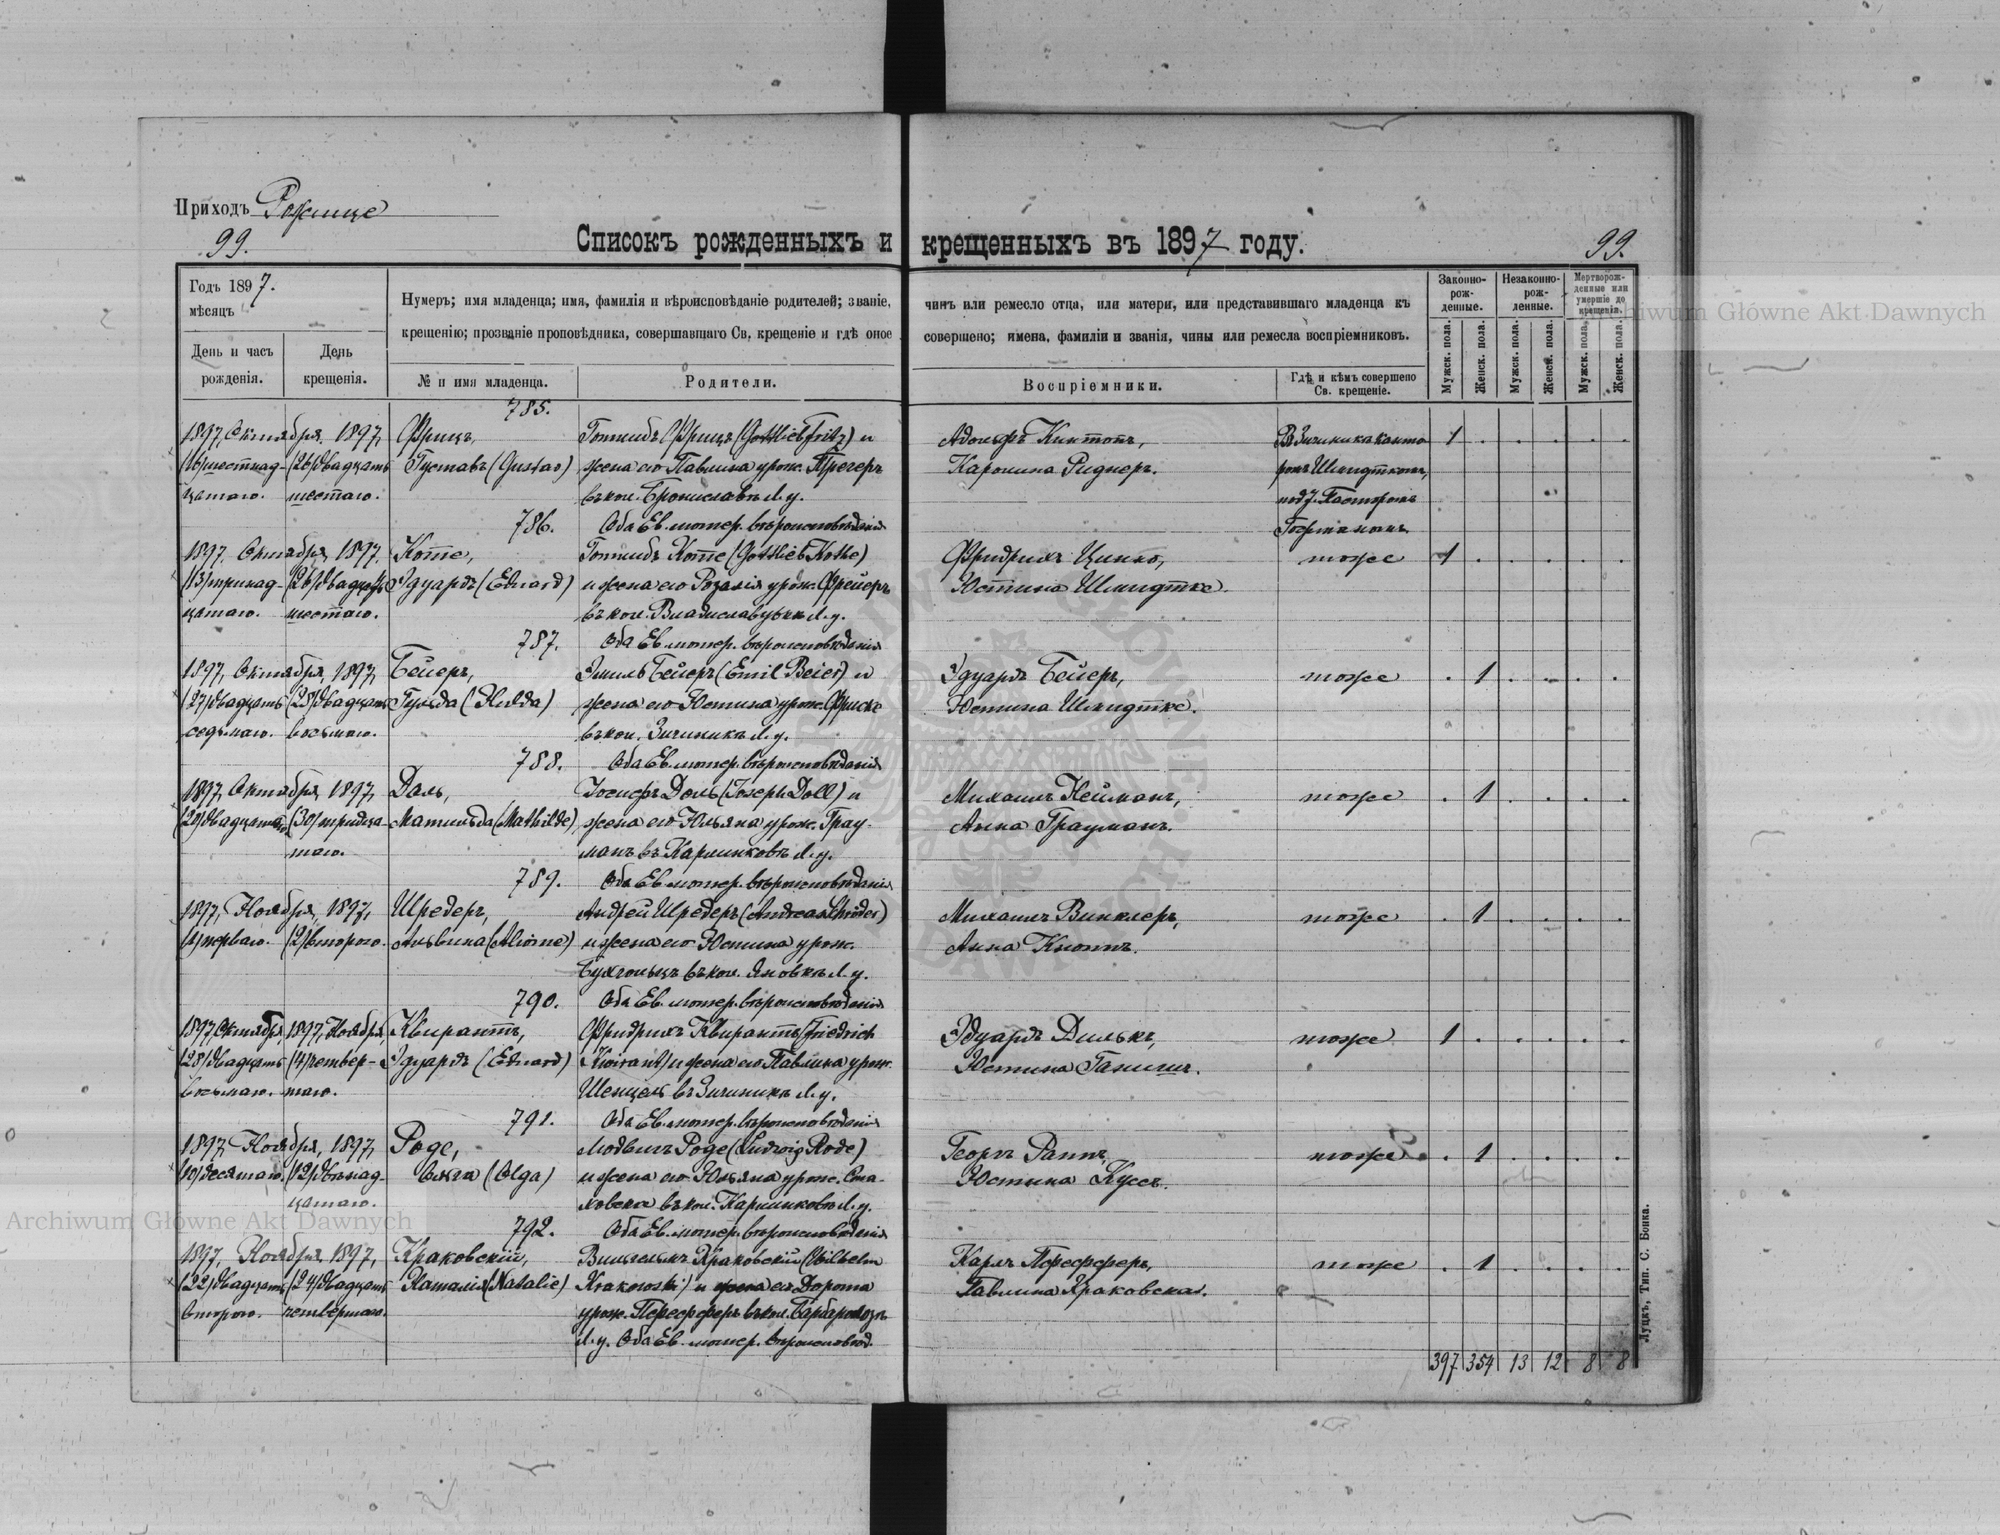 Приходъ Рожище
99.
Списокъ рожденныхъ и крещенныхъ въ 1897 году.
99.
Годъ 1897.
мѣсяцъ
День и часъ рожденія.
День крещенія.
Нумеръ; имя младенца; имя, фамилія и вѣроисповѣданіе родителей; званіе, чинъ или ремесло отца, или матери, или представившаго младенца къ
крещенію; прозваніе проповѣдника, совершавшаго Св. крещеніе и гдѣ оное совершено; имена, фамиліи и званія, чины или ремесла воспріемниковъ.
№ и имя младенца.
Родители.
Воспріемники.
Гдѣ и кѣмъ совершено Св. крещеніе.
Законно-рож-денные.
Незаконно-рож-денные.
Мертворож-денные или умершіе до крещенія.
Мужск. пола.
Женск. пола.
Мужск. пола.
Женск. пола.
Мужск. пола.
Женск. пола.
785.
1897, Октября, 1897, Фрицъ, Готлибъ Фрицъ (Gottlieb Fritz) и Адольфъ Книтопъ, Въ Зичиника канто 1 . . . . .
(16) шестнад- (26) двадцать Густавъ (Gustav) жена его Павлина урож. Прегеръ Каролина Риднеръ. ромъ Шмидткомъ,
цатаго. шестаго. въ кол. Брониславкѣ Л. у. под. Пасторомъ
786. Оба Ев. лютер. вѣроисповѣданія Германомъ
1897, Октября, 1897, Котте, Готлибъ Котте (Gottlieb Kotte) Фридрихъ Цинко, тоже 1 . . . . .
(13) тринад- (26) двадцать Эдуардъ (Eduard) и жена его Розалія урож. Фрейеръ Юстина Шмидтке.
цатаго. шестаго. въ кол. Владиславувки Л. у.
787. Оба Ев. лютер. вѣроисповѣданія
1897, Октября, 1897, Бейеръ, Эмиль Бейеръ (Emil Beier) и Эдуардъ Бейеръ, тоже . 1 . . . .
(27) двадцать (28) двадцать Гульда (Hulda) жена его Юстина урож. Фриске Юстина Шмидтке.
седьмаго. восьмаго. въ кол. Зичиникъ Л. у.
788. Оба Ев. лютер. вѣроисповѣданія
1897, Октября, 1897, Даль, Іосифъ Доль (Joseph Doll) и Михаилъ Нейманъ, тоже . 1 . . . .
(20) двадцатаго (30) тридца- Матильда (Mathilde) жена его Юльяна урож. Грау- Анна Грауманъ.
таго. манъ въ Карлинковѣ Л. у.
789. Оба Ев. лютер. вѣроисповѣданія
1897, Ноября, 1897, Шредеръ, Андрей Шредеръ (Andreas Schröder) Михаилъ Винклеръ, тоже . 1 . . . .
(1) перваго. (2) втораго. Альвина (Alwine) и жена его Юстина урож. Анна Кноппъ.
Бухгольцъ въ кол. Яновкѣ Л. у.
790. Оба Ев. лютер. вѣроисповѣданія
1897, Октября, 1897, Ноября, Квирантъ, Фридрихъ Квирантъ (Friedrich Эдуардъ Дилькъ, тоже 1 . . . . .
(28) двадцать (4) четвер- Эдуардъ (Eduard) Kwirant) и жена его Павлина урож. Юстина Ганишъ.
восьмаго. таго. Шенцель въ Зичиникъ Л. у.
791. Оба Ев. лютер. вѣроисповѣданія
1897, Ноября, 1897, Роде, Людвигъ Роде (Ludwig Rode) Георгъ Раппъ, тоже . 1 . . . .
(10) десятаго. (12) двѣнад- Ольга (Olga) и жена его Юльяна урож. Ста- Юстина Куссъ.
цатаго. ховска въ кол. Карлинковѣ Л. у.
792. Оба Ев. лютер. вѣроисповѣданія
1897, Ноября, 1897, Краковскій, Вильгельмъ Краковскій (Wilhelm Карлъ Пфефферъ, тоже . 1 . . . .
(22) двадцать (24) двадцать Наталія (Natalie) Krakowski) и жена его Дорота Павлина Краковска.
втораго. четвертаго. урож. Пфефферъ въ кол.
Л. у. Оба Ев. лютер. вѣроисповѣд.
397 354 13 12 8 8
Луцкъ, Тип. С. Бонка.
Archiwum Główne Akt Dawnych
Archiwum Główne Akt Dawnych